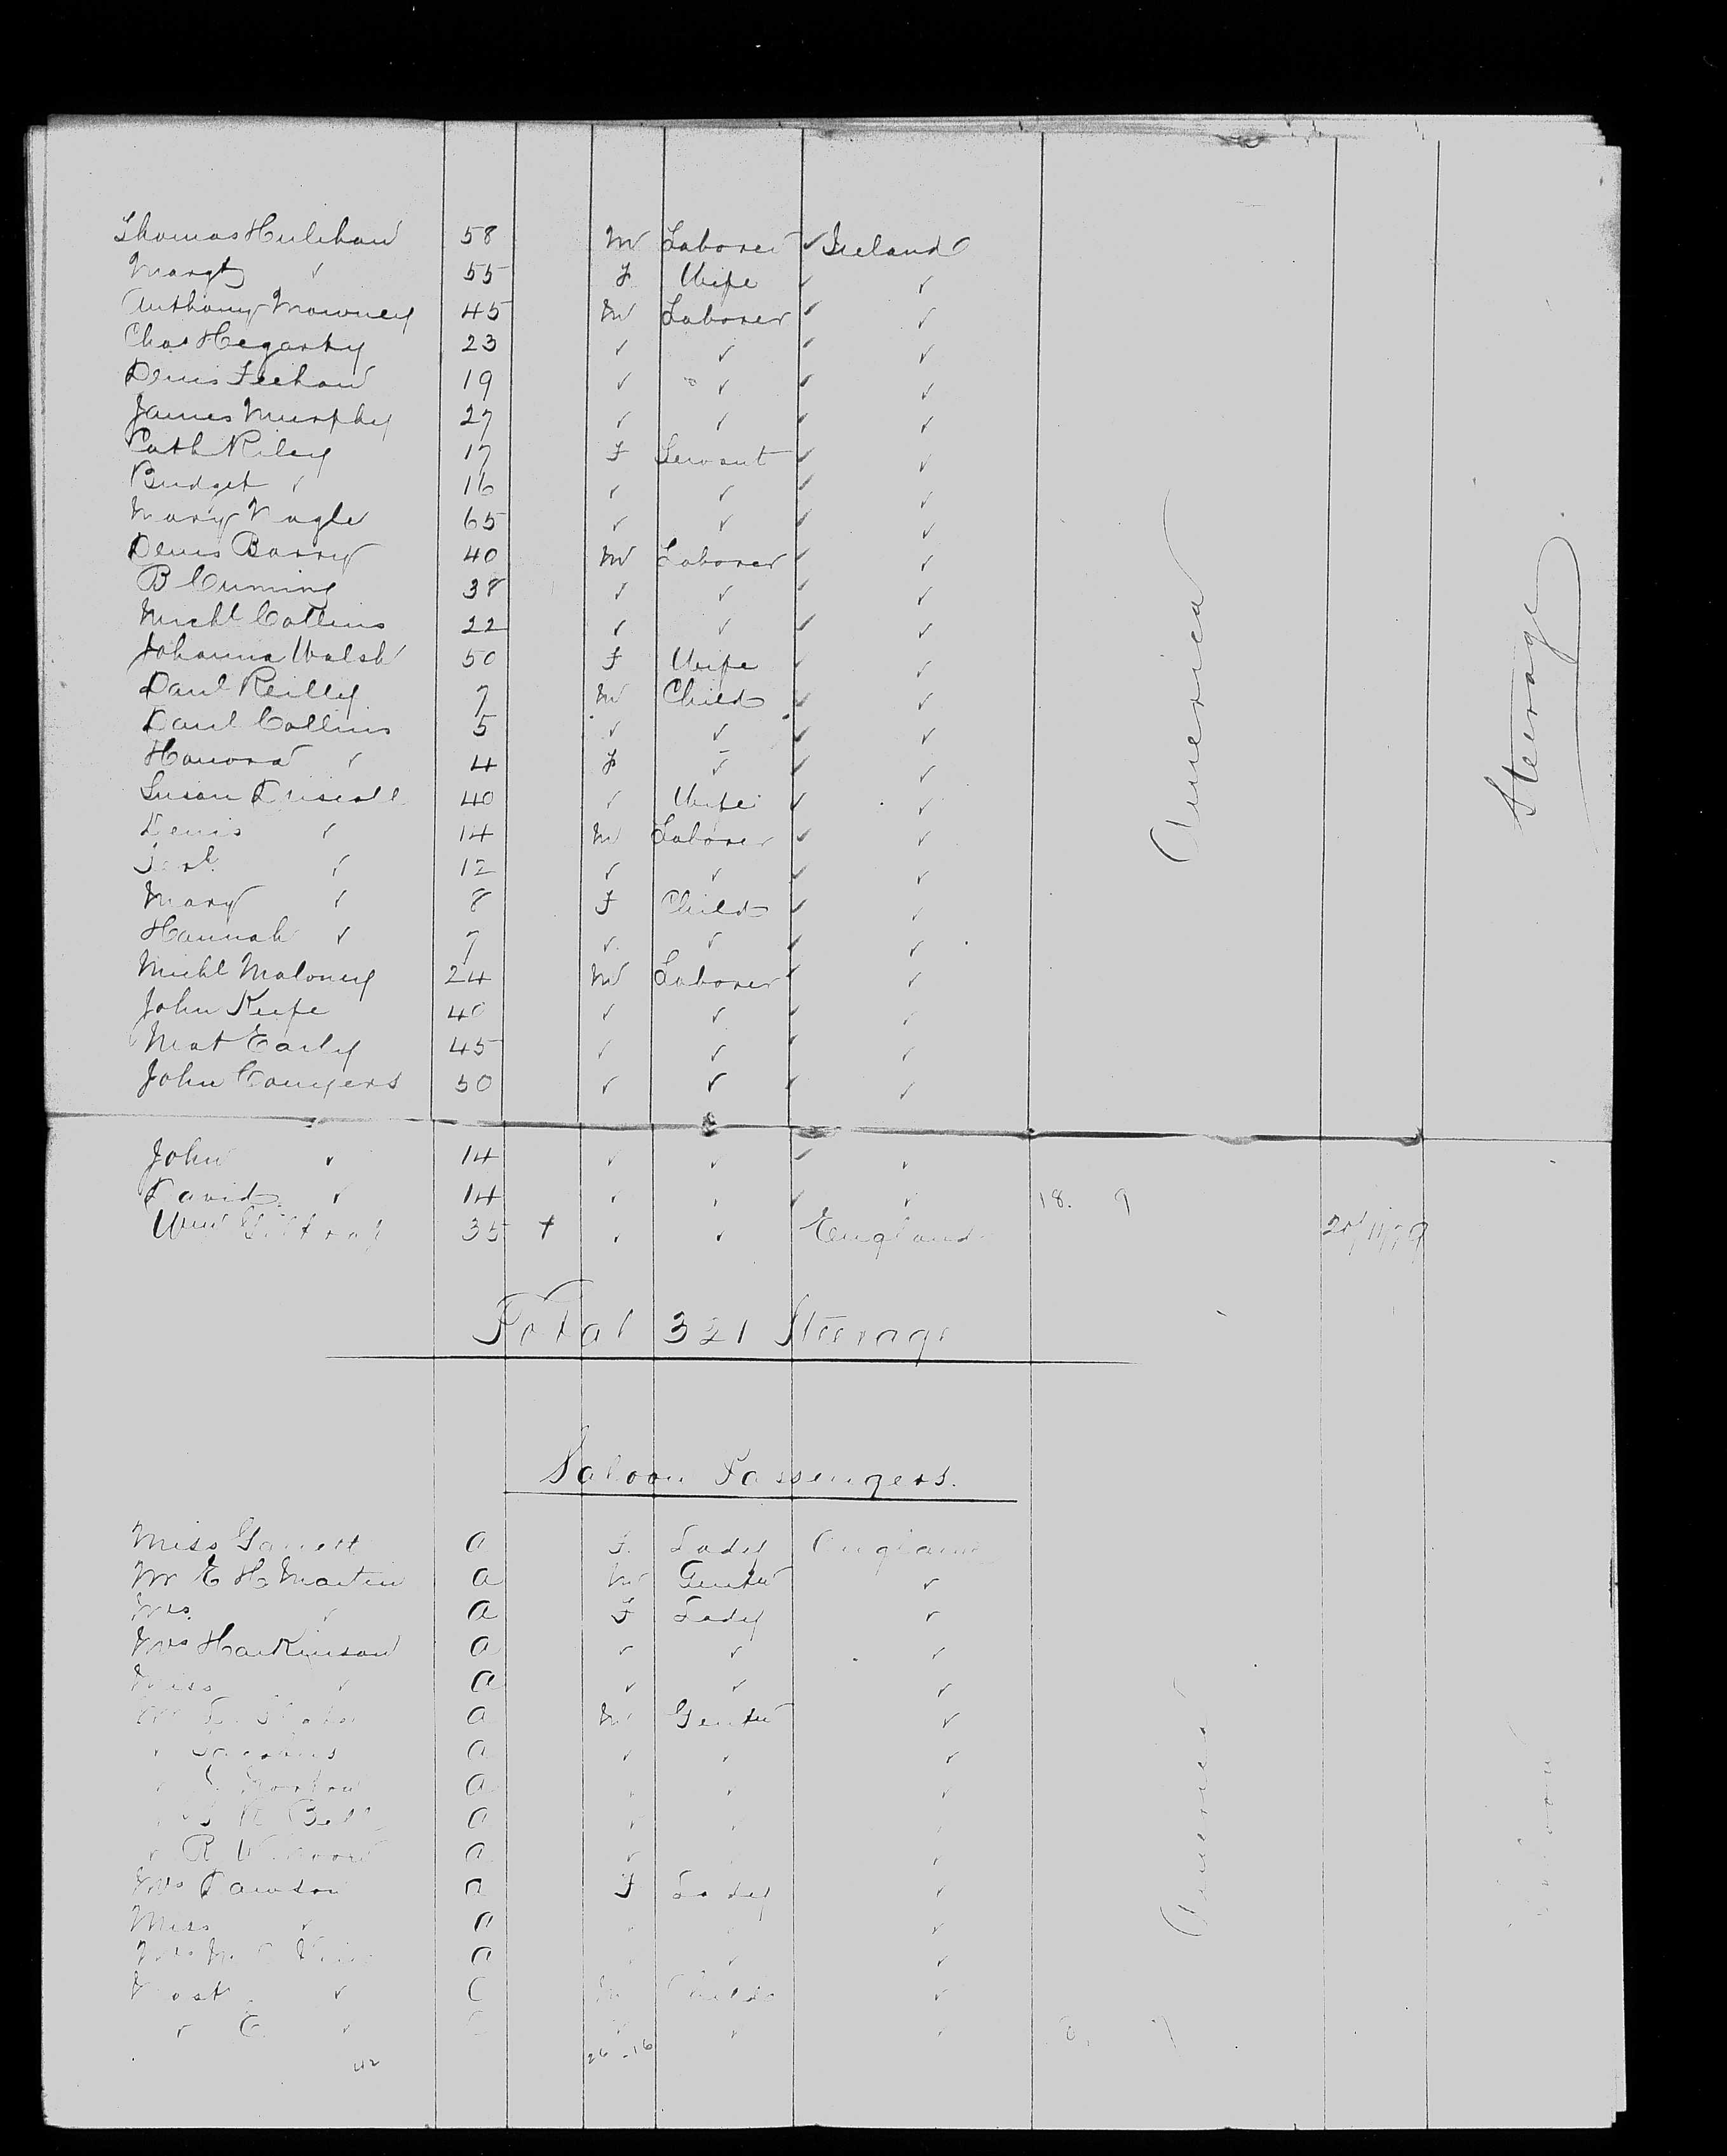 Thomas Hulihan 58 M Laborer ✓ Ireland
Margt ✓ 55 F Wife ✓ ✓
Anthony Mowney 45 M Laborer ✓ ✓
Chas Hegarty 23 ✓ ✓ ✓ ✓
Denis Feehan 19 ✓ ✓ ✓ ✓
James Murphy 27 ✓ ✓ ✓ ✓
Cath Riley 17 F Servant ✓ ✓
Bridget ✓ 16 ✓ ✓ ✓ ✓
Mary Nagle 65 ✓ ✓ ✓ ✓
Denis Barry 40 M Laborer ✓ ✓
B Cuming 38 ✓ ✓ ✓ ✓
Michl Collins 22 ✓ ✓ ✓ ✓
Johanna Walsh 50 F Wife ✓ ✓
Danl Reilly 7 M Child ✓ ✓
Danl Collins 5 ✓ ✓ ✓ ✓
Honora ✓ 4 F ✓ ✓ ✓
Susan Driscoll 40 ✓ Wife ✓ ✓
Denis ✓ 14 M Laborer ✓ ✓
✓ 12 ✓ ✓ ✓ ✓
Mary ✓ 8 F Child ✓ ✓
Hannah ✓ 7 ✓ ✓ ✓ ✓
Michl Maloney 24 M Laborer ✓ ✓
John Keefe 40 ✓ ✓ ✓ ✓
Mat Early 45 ✓ ✓ ✓ ✓
John Conyers 50 ✓ ✓ ✓ ✓
America
Steerage
John ✓ 14 ✓ ✓ ✓ ✓
David ✓ 14 ✓ ✓ ✓ ✓ 18. 9
Wm 35 + ✓ ✓ England 20/11/79
Total 321 Steerage
Saloon Passengers.
Miss Garrett a F. Lady England
Mr E H Martin a M Gentn ✓
Mrs. ✓ a F Lady ✓
Mrs Harkinson a ✓ ✓ ✓
Miss ✓ a ✓ ✓ ✓
Mr a M Gentn ✓
✓ a ✓ ✓ ✓
✓ a ✓ ✓ ✓
✓ Bell a ✓ ✓ ✓
✓ R a ✓ ✓
Mrs Dawson a F Lady ✓
Miss ✓ a ✓ ✓
Mrs a ✓ ✓
Mast ✓ C M Child ✓
✓ C. ✓ C ✓ ✓
America
Saloon
42 26-16